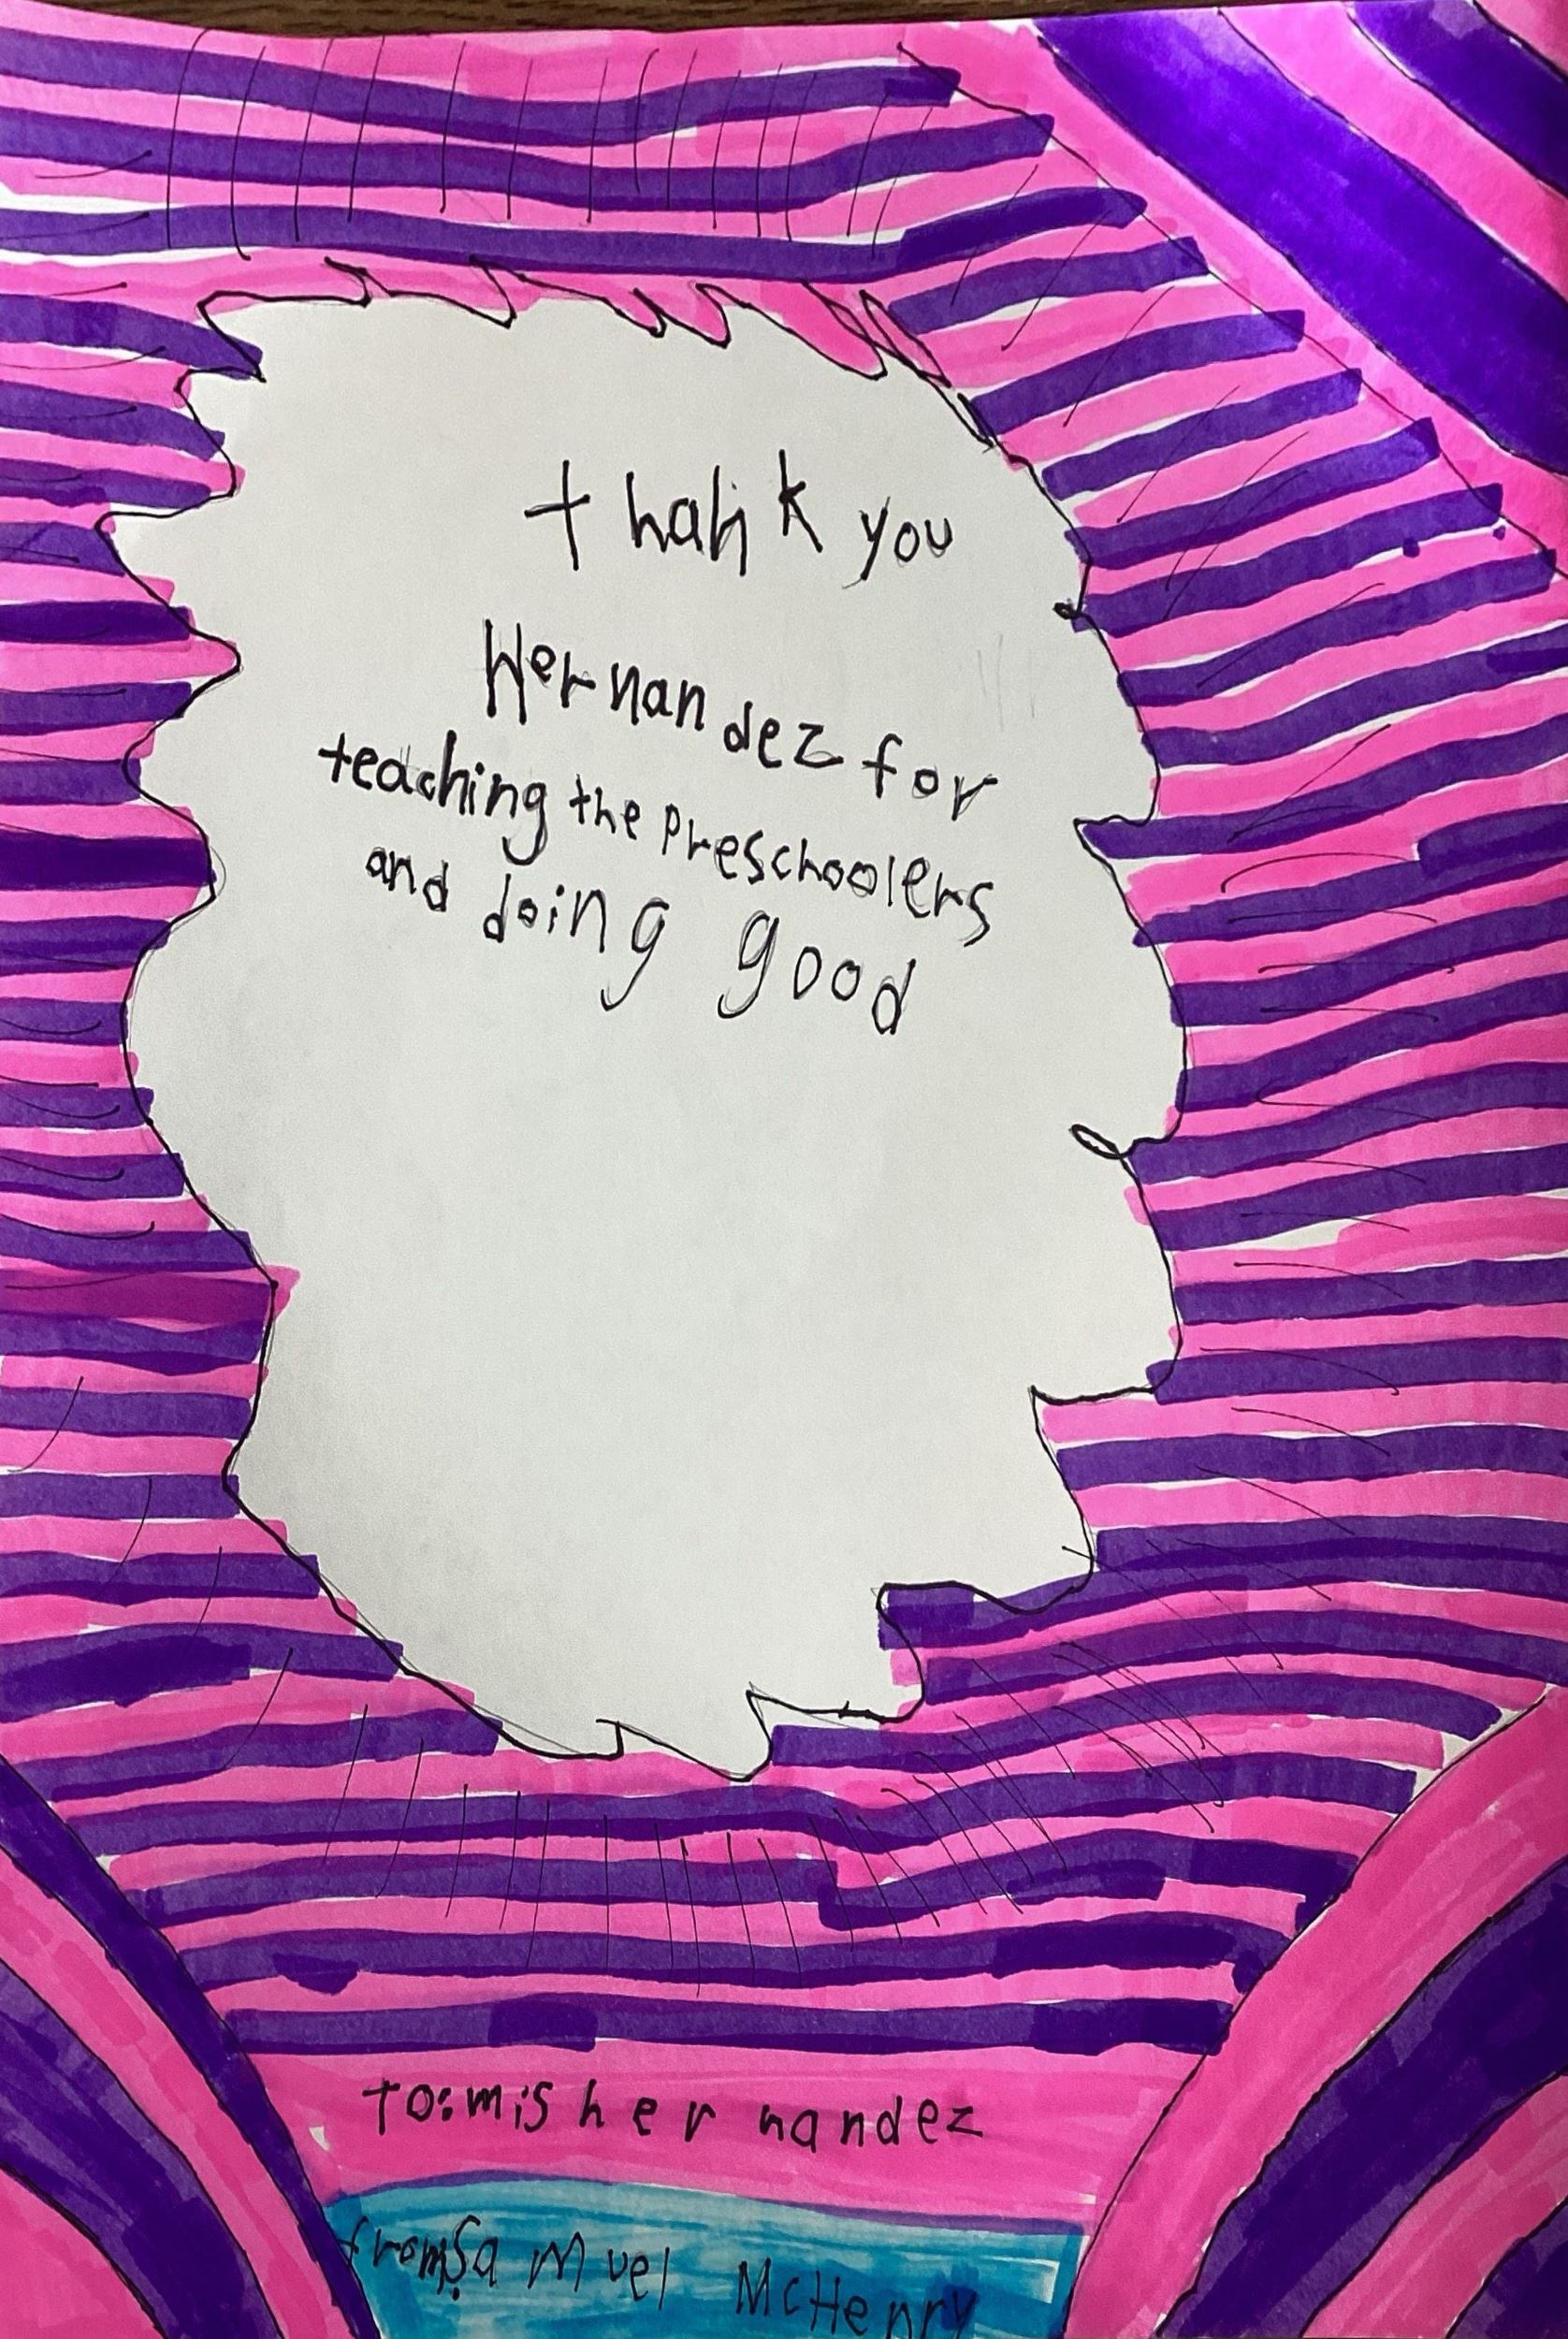 thank you
Hernandez for
teaching the preschoolers
and doing good
to: mis hernandez
from: Samuel McHenry